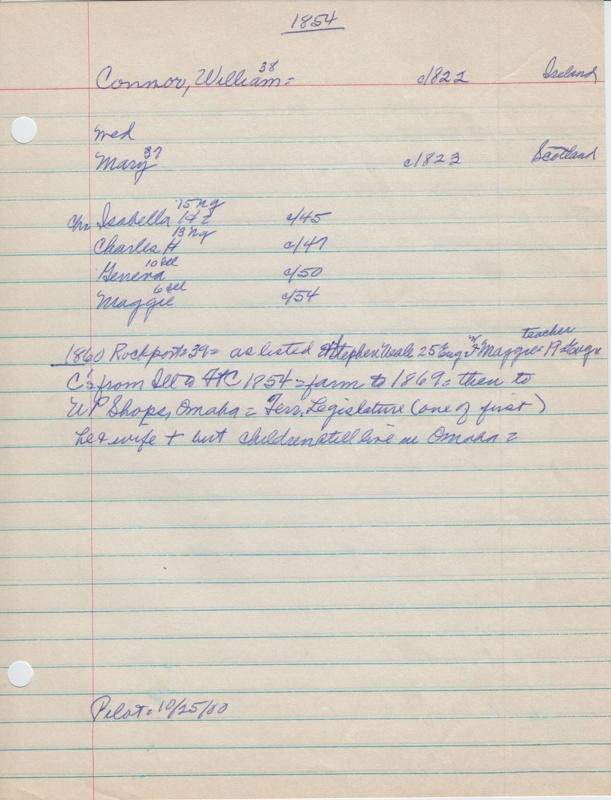 1854
Connor, William 38 = c/1822 Ireland
Wed
Mary 37 c/1823 Scotland
Chr Isabella 14 15 Ny c/45
Charles H 13 Ny c/47
Geneva 10 Ill c/50
Maggie 6 Ill c/54
1860 Rockport = 39 = as listed + Stephen Neale 25 Eng + Maggie = 19 = Eng teacher
C's from Ill to HC 1854 = farm to 1869 = then to
UP Shops, Omaha = Terr, Legislature (one of first)
he & wife + but children still live in Omaha =
Pilot = 10/25/00